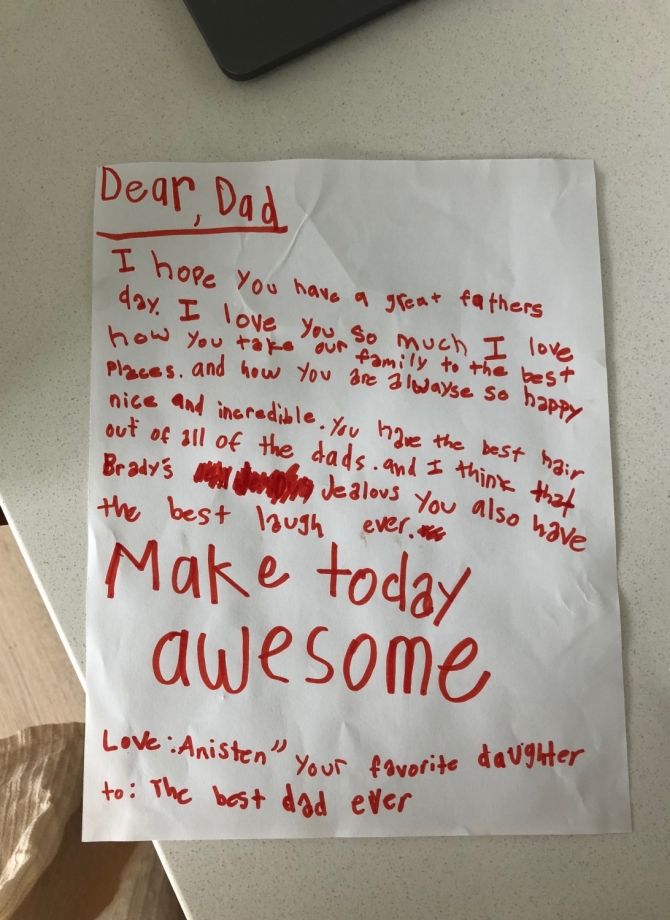 Dear, Dad
I hope you have a great fathers
day. I love you so much I love
how you take our family to the best
Places. and how you are alwayse so happy
nice and incredible. You have the best hair
out of all of the dads. and I think that
Brady's Jealous you also have
the best laugh ever.
Make today
awesome
Love: Anisten" your favorite daughter
to: The best dad ever